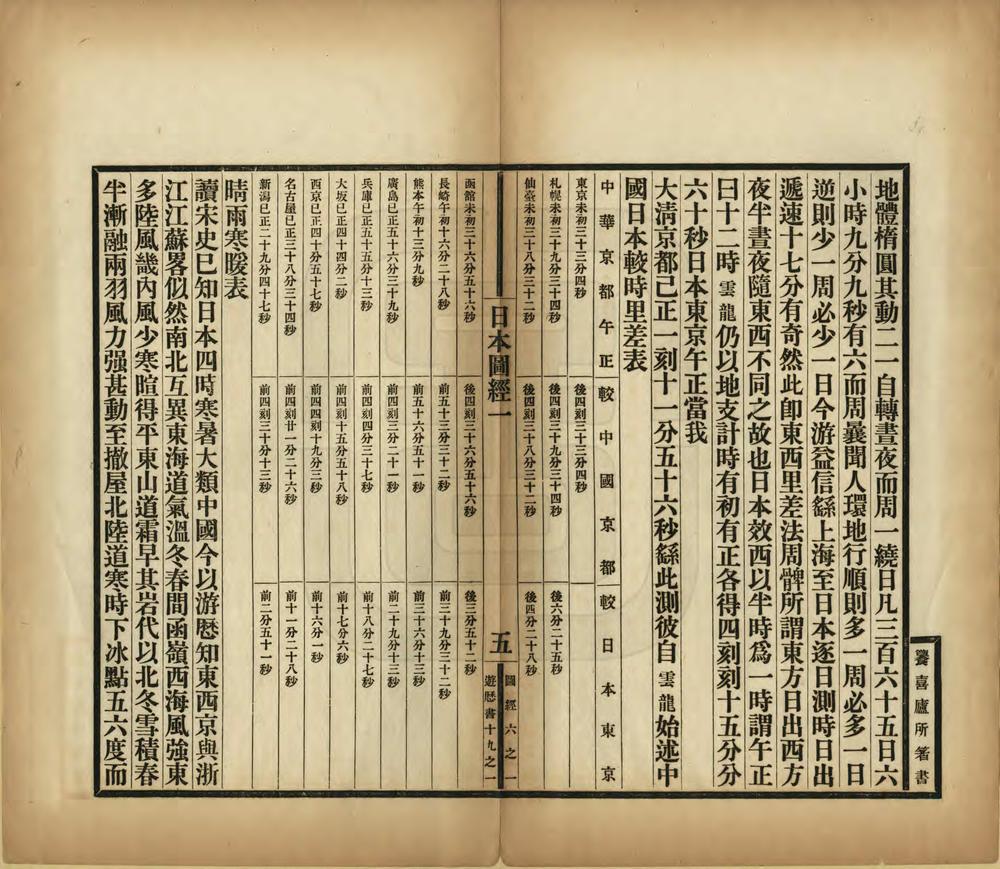 籑喜廬所箸書
地體橢圓其動二一自轉晝夜而周一繞日凡三百六十五日六
小時九分九秒有六而周曩聞人環地行順則多一周必多一日
逆則少一周必少一日今游益信繇上海至日本逐日測時日出
遞速十七分有奇然此卽東西里差法周髀所謂東方日出西方
夜半晝夜隨東西不同之故也日本效西以半時爲一時謂午正
曰十二時雲龍仍以地支計時有初有正各得四刻刻十五分分
六十秒日本東京午正當我
大清京都巳正一刻十一分五十六秒繇此測彼自雲龍始述中
國日本較時里差表
中華京都午正 較中國京都 較日本東京
東京未初三十三分四秒 後四刻三十三分四秒
札幌未初三十九分三十四秒 後四刻三十九分三十四秒 後六分二十五秒
仙臺未初三十八分三十二秒 後四刻三十八分三十二秒 後四分二十八秒
日本圖經一 五 圖經六之一
遊歷書十九之一
函館未初三十六分五十六秒 後四刻三十六分五十六秒 後三分五十二秒
長崎午初十六分二十八秒 前五十三分三十二秒 前三十九分三十二秒
熊本午初十三分九秒 前五十六分五十一秒 前三十六分十三秒
廣島巳正五十六分三十九秒 前四刻三分二十一秒 前二十九分十三秒
兵庫巳正五十五分十三秒 前四刻四分三十七秒 前十八分二十七秒
大坂巳正四十四分二秒 前四刻十五分五十八秒 前十七分六秒
西京巳正四十分五十七秒 前四四刻十九分三秒 前十六分一秒
名古屋巳正三十八分三十四秒 前四刻廿一分二十六秒 前十一分二十八秒
新潟巳正二十九分四十七秒 前四刻三十分十三秒 前二分五十一秒
晴雨寒暖表
讀宋史已知日本四時寒暑大類中國今以游歷知東西京與浙
江江蘇畧似然南北互異東海道氣溫冬春間函嶺西海風強東
多陸風畿內風少寒暄得平東山道霜早其岩代以北冬雪積春
半漸融兩羽風力强甚動至撤屋北陸道寒時下冰點五六度而